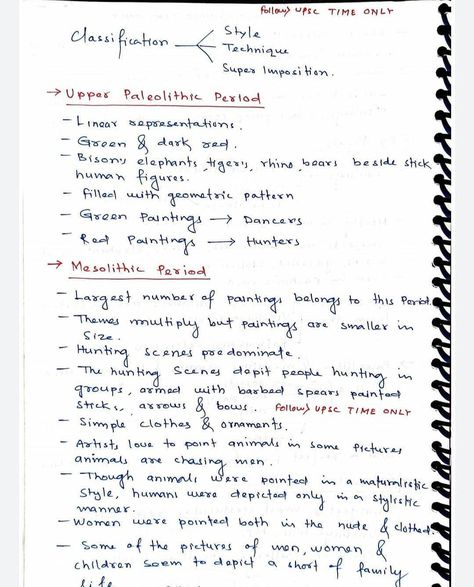 Follow) UPSC TIME ONLY
Classification
Style
Technique
Super Imposition.
→ Upper Paleolithic Period
- Linear representations.
- Green & dark red.
- Bison's, elephants, tiger's, rhino, bears beside stick
human figures.
- filled with geometric pattern
- Green Paintings → Dancers
- Red Paintings → Hunters
→ Mesolithic Period
- Largest number of paintings belongs to this Period.
- Themes multiply but paintings are smaller in
Size.
- Hunting scenes predominate.
- The hunting Scenes depit people hunting in
groups, armed with barbed spears pointed
sticks, arrows & bows. Follow) UPSC TIME ONLY
- Simple clothes & ornaments.
- Artists love to point animals in some pictures
animals are chasing men.
- Though animals were pointed in a naturalistic
style, humans were depicted only in a stylistic
manner.
- Women were pointed both in the nude & clothed.
- Some of the pictures of men, women &
children seem to depict a short of family
life